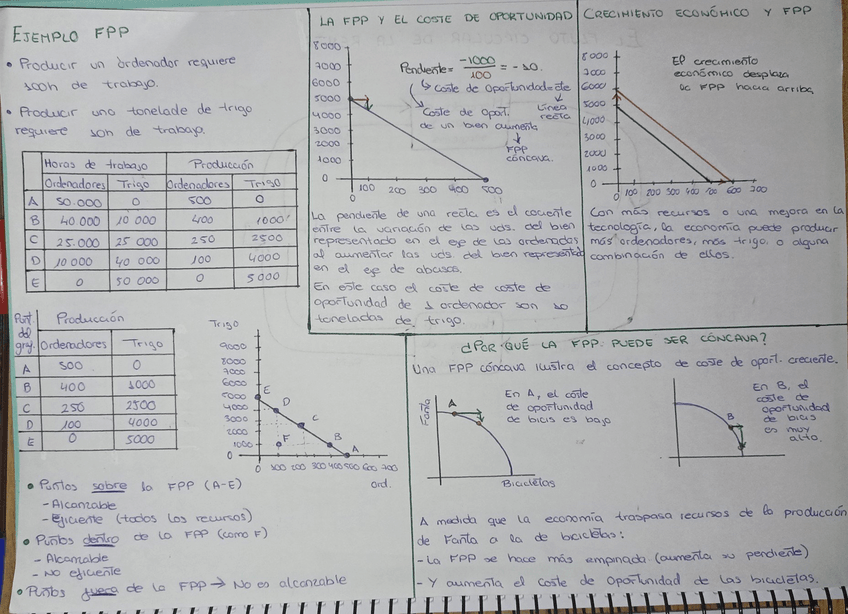 EJEMPLO FPP
• Producir un ordenador requiere
100h de trabajo.
• Producir una tonelada de trigo
requiere 10h de trabajo.
Horas de trabajo Producción
Ordenadores Trigo Ordenadores Trigo
A 50.000 0 500 0
B 40.000 10 000 400 1000
C 25.000 25 000 250 2500
D 10 000 40 000 100 4000
E 0 50 000 0 5000
Punt. del gráf.
Producción
Ordenadores Trigo
A 500 0
B 400 1000
C 250 2500
D 100 4000
E 0 5000
Trigo
9000
8000
7000
6000
5000 E
4000 D
3000 C
2000
1000 F B
0 A
0 100 200 300 400 500 600 700
ord.
• Puntos sobre la FPP (A-E)
- Alcanzable
- Eficiente (todos los recursos)
• Puntos dentro de la FPP (como F)
- Alcanzable
- No eficiente
• Puntos fuera de la FPP → No es alcanzable
LA FPP Y EL COSTE DE OPORTUNIDAD
8000
7000
6000
5000
4000
3000
2000
1000
0
100 200 300 400 500
Pendiente = -1000/100 = -10.
Coste de oportunidad = cte
↓
Línea
recta
Coste de oport.
de un bien aumenta
↓
FPP
cóncava.
La pendiente de una recta es el cociente
entre la variación de las uds. del bien
representado en el eje de las ordenadas
al aumentar las uds. del bien representado
en el eje de abcisas.
En este caso el coste de coste de
oportunidad de 1 ordenador son 10
toneladas de trigo.
CRECIMIENTO ECONÓMICO Y FPP
8000
7000
6000
5000
4,000
3000
2000
1000
0
0 100 200 300 400 500 600 700
El crecimiento
económico desplaza
la FPP hacia arriba
Con más recursos o una mejora en la
tecnología, la economía puede producir
más ordenadores, más trigo o alguna
combinación de ellos.
¿POR QUÉ LA FPP PUEDE SER CÓNCAVA?
Una FPP cóncava ilustra el concepto de coste de oport. creciente.
Fanta
A
En A, el coste
de oportunidad
de bicis es bajo
Bicicletas
B
En B, el
coste de
oportunidad
de bicis
es muy
alto.
A medida que la economía traspasa recursos de la producción
de Fanta a la de bicicletas:
- La FPP se hace más empinada (aumenta su pendiente)
- Y aumenta el coste de oportunidad de las bicicletas.